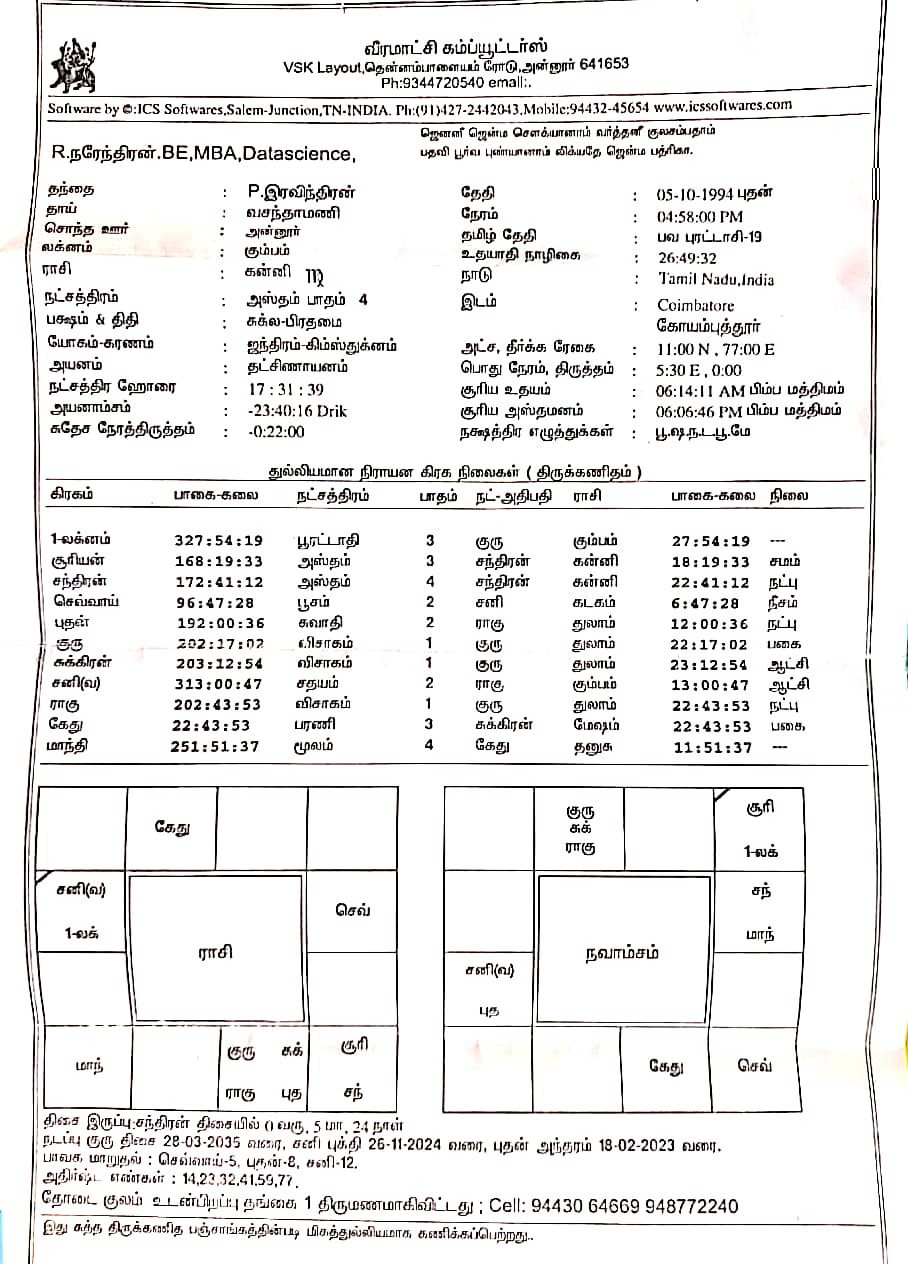 வீரமாட்சி கம்ப்யூட்டர்ஸ்
VSK Layout,தென்னம்பாளையம் ரோடு,அன்னூர் 641653
Ph:9344720540 email:.
Software by ©:ICS Softwares,Salem-Junction,TN-INDIA. Ph:(91)427-2442043,Mobile:94432-45654 www.icssoftwares.com
ஜெனனீ ஜென்ம சௌக்யானாம் வர்த்தனீ குலசம்பதாம்
R.நரேந்திரன்.BE,MBA,Datascience, பதவி பூர்வ புண்யானாம் லிக்யதே ஜென்ம பத்ரிகா.
தந்தை : P.இரவிந்திரன் தேதி : 05-10-1994 புதன்
தாய் : வசந்தாமணி நேரம் : 04:58:00 PM
சொந்த ஊர் : அன்னூர் தமிழ் தேதி : பவ புரட்டாசி-19
லக்னம் : கும்பம் உதயாதி நாழிகை : 26:49:32
ராசி : கன்னி ♍ நாடு : Tamil Nadu,India
நட்சத்திரம் : அஸ்தம் பாதம் 4 இடம் : Coimbatore
பக்ஷம் & திதி : சுக்ல-பிரதமை கோயம்புத்தூர்
யோகம்-கரணம் : ஐந்திரம்-கிம்ஸ்துக்னம் அட்ச, தீர்க்க ரேகை : 11:00 N , 77:00 E
அயனம் : தட்சிணாயனம் பொது நேரம், திருத்தம் : 5:30 E , 0:00
நட்சத்திர ஹோரை : 17 : 31 : 39 சூரிய உதயம் : 06:14:11 AM பிம்ப மத்திமம்
அயனாம்சம் : -23:40:16 Drik சூரிய அஸ்தமனம் : 06:06:46 PM பிம்ப மத்திமம்
சுதேச நேரத்திருத்தம் : -0:22:00 நக்ஷத்திர எழுத்துக்கள் : பூ.ஷ.ந.ட.பூ.மே
துல்லியமான நிராயன கிரக நிலைகள் ( திருக்கணிதம் )
கிரகம் பாகை-கலை நட்சத்திரம் பாதம் நட்-அதிபதி ராசி பாகை-கலை நிலை
1-லக்னம் 327:54:19 பூரட்டாதி 3 குரு கும்பம் 27:54:19 ---
சூரியன் 168:19:33 அஸ்தம் 3 சந்திரன் கன்னி 18:19:33 சமம்
சந்திரன் 172:41:12 அஸ்தம் 4 சந்திரன் கன்னி 22:41:12 நட்பு
செவ்வாய் 96:47:28 பூசம் 2 சனி கடகம் 6:47:28 நீசம்
புதன் 192:00:36 சுவாதி 2 ராகு துலாம் 12:00:36 நட்பு
குரு 202:17:02 விசாகம் 1 குரு துலாம் 22:17:02 பகை
சுக்கிரன் 203:12:54 விசாகம் 1 குரு துலாம் 23:12:54 ஆட்சி
சனி(வ) 313:00:47 சதயம் 2 ராகு கும்பம் 13:00:47 ஆட்சி
ராகு 202:43:53 விசாகம் 1 குரு துலாம் 22:43:53 நட்பு
கேது 22:43:53 பரணி 3 சுக்கிரன் மேஷம் 22:43:53 பகை
மாந்தி 251:51:37 மூலம் 4 கேது தனுசு 11:51:37 ---
கேது
சனி(வ)
1-லக்
செவ்
ராசி
மாந்
குரு சுக்
ராகு புத
சூரி
சந்
குரு
சுக்
ராகு
சூரி
1-லக்
சந்
மாந்
நவாம்சம்
சனி(வ)
புத
கேது
செவ்
திசை இருப்பு:சந்திரன் திசையில் 0 வரு, 5 மா, 24 நாள்
நடப்பு குரு திசை 28-03-2035 வரை, சனி புக்தி 26-11-2024 வரை, புதன் அந்தரம் 18-02-2023 வரை.
பாவக மாறுதல் : செவ்வாய்-5, புதன்-8, சனி-12.
அதிர்ஷ்ட எண்கள் : 14,23,32,41,59,77.
தோடை குலம் உடன்பிறப்பு தங்கை 1 திருமணமாகிவிட்டது ; Cell: 94430 64669 948772240
இது சுத்த திருக்கணித பஞ்சாங்கத்தின்படி மிகத்துல்லியமாக கணிக்கப்பெற்றது..